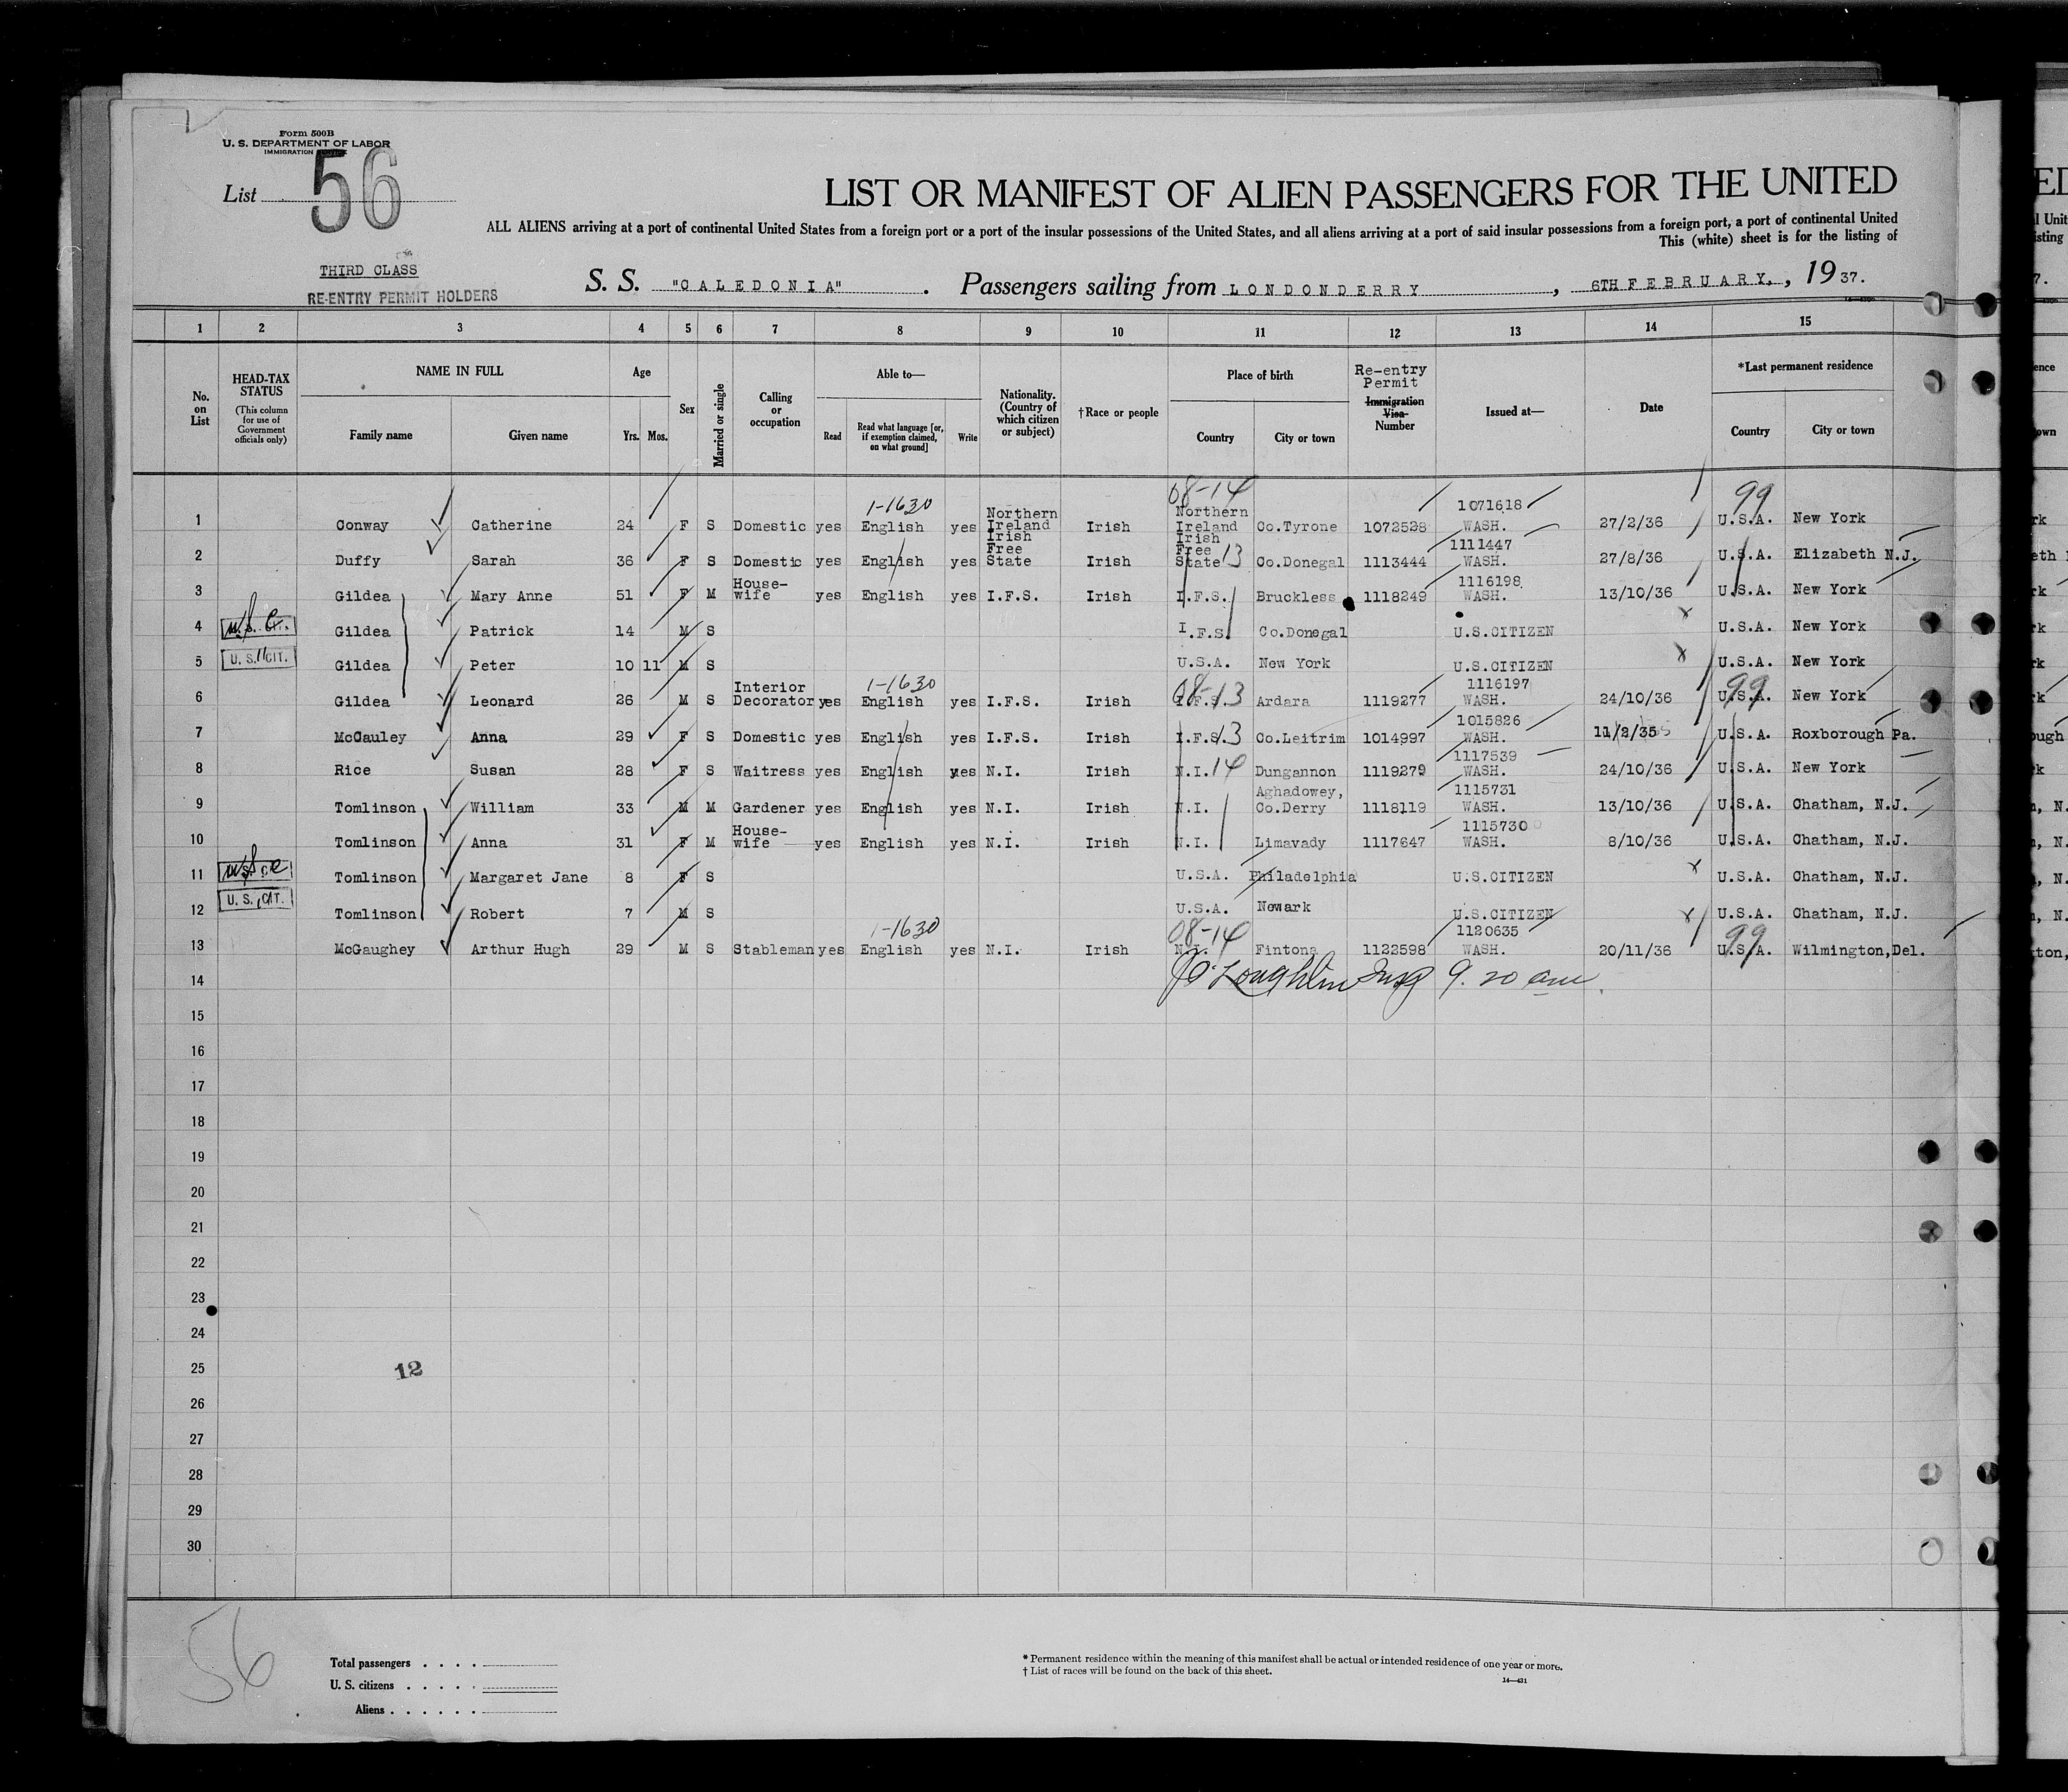 Form 500B
U. S. DEPARTMENT OF LABOR
IMMIGRATION
List 56
LIST OR MANIFEST OF ALIEN PASSENGERS FOR THE UNITED
ALL ALIENS arriving at a port of continental United States from a foreign port or a port of the insular possessions of the United States, and all aliens arriving at a port of said insular possessions from a foreign port, a port of continental United
This (white) sheet is for the listing of
THIRD CLASS
RE-ENTRY PERMIT HOLDERS
S. S. "CALEDONIA". Passengers sailing from LONDONDERRY, 6TH FEBRUARY, , 1937.
1 2 3 4 5 6 7 8 9 10 11 12 13 14 15
No. on List
HEAD-TAX STATUS (This column for use of Government officials only)
NAME IN FULL Family name Given name
Age Yrs. Mos.
Sex
Married or single
Calling or occupation
Able to— Read Read what language [or, if exemption claimed, on what ground] Write
Nationality. (Country of which citizen or subject)
†Race or people
Place of birth Country City or town
Re-entry Permit Immigration Visa Number
Issued at—
Date
*Last permanent residence Country City or town
1-1630 08-14 1071618 99
1 Conway Catherine 24 F S Domestic yes English yes Northern Ireland Irish Northern Ireland Co.Tyrone 1072528 WASH. 27/2/36 U.S.A. New York
1111447
2 Duffy Sarah 36 F S Domestic yes English yes Irish Free State Irish Irish Free State 13 Co.Donegal 1113444 WASH. 27/8/36 U.S.A. Elizabeth N.J.
1116198
3 Gildea Mary Anne 51 F M House-wife yes English yes I.F.S. Irish I.F.S. Bruckless 1118249 WASH. 13/10/36 U.S.A. New York
4 Gildea Patrick 14 M S I.F.S. Co.Donegal U.S.CITIZEN x U.S.A. New York
5 U. S. CIT. Gildea Peter 10 11 M S U.S.A. New York U.S.CITIZEN x U.S.A. New York
1-1630 08-13 1116197 99
6 Gildea Leonard 26 M S Interior Decorator yes English yes I.F.S. Irish I.F.S. Ardara 1119277 WASH. 24/10/36 U.S.A. New York
1015826
7 McCauley Anna 29 F S Domestic yes English yes I.F.S. Irish I.F.S. 13 Co.Leitrim 1014997 WASH. 11/2/35 U.S.A. Roxborough Pa.
1117539
8 Rice Susan 28 F S Waitress yes English yes N.I. Irish N.I. 14 Dungannon 1119279 WASH. 24/10/36 U.S.A. New York
1115731
9 Tomlinson William 33 M M Gardener yes English yes N.I. Irish N.I. Aghadowey, Co.Derry 1118119 WASH. 13/10/36 U.S.A. Chatham, N.J.
1115730
10 Tomlinson Anna 31 F M House-wife yes English yes N.I. Irish N.I. Limavady 1117647 WASH. 8/10/36 U.S.A. Chatham, N.J.
11 Tomlinson Margaret Jane 8 F S U.S.A. Philadelphia U.S.CITIZEN x U.S.A. Chatham, N.J.
12 U. S. CIT. Tomlinson Robert 7 M S U.S.A. Newark U.S.CITIZEN x U.S.A. Chatham, N.J.
1-1630 08-14 1120635 99
13 McGaughey Arthur Hugh 29 M S Stableman yes English yes N.I. Irish N.I. Fintona 1122598 WASH. 20/11/36 U.S.A. Wilmington,Del.
14 9.20 am.
15
16
17
18
19
20
21
22
23
24
25 12
26
27
28
29
30
56
Total passengers
U. S. citizens
Aliens
* Permanent residence within the meaning of this manifest shall be actual or intended residence of one year or more.
† List of races will be found on the back of this sheet.
14—431